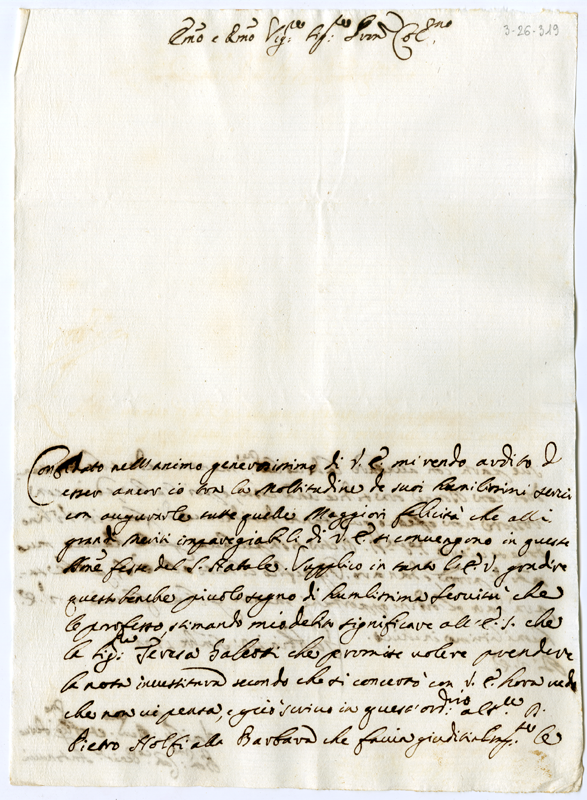 3-26-319
Emo e Rmo Sig:re Sig:re Pron Col.mo
Confidato nell'animo generosissimo di V. E. mi rendo ardito d
esser ancor io tra la Moltitudine de suoi humilissimi servi
con augurarle tutte quelle Maggiori felicità che alli
grandi meriti impareggiabili di V. E. si convengono in queste
feste del S. Natale. Supplico in tanto l'E. V. gradire
questo benche picolo segno di humilissima servitù che
le professo, stimando mio debito significare all'E. S. che
la Sig:ra Teresa Galetti che promise volere prendere
la nota investitura secondo che si concertò con V. E. hora vedo
che non vi pensa, e giò scrivo in quest'ord:rio al
Pietro Stolfi alla Barbara che facia le